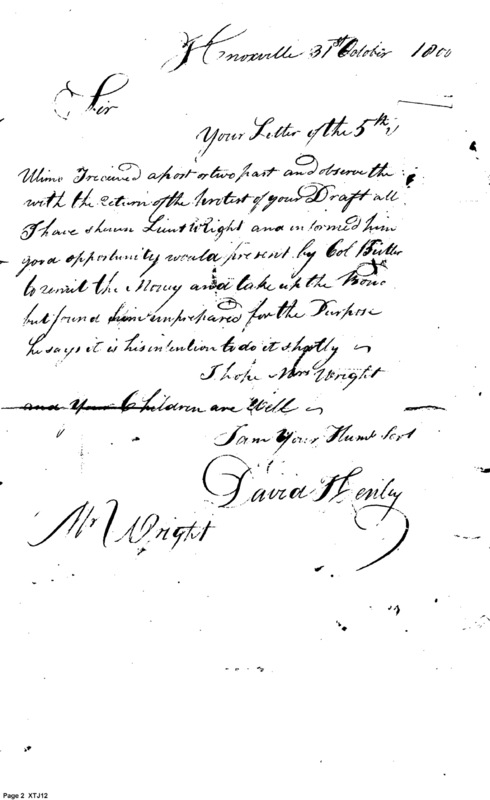 Knoxville 31st October 1800
Sir
Your Letter of the 5th
Ultimo I received a post or two past and observe the
with the Return of the Protest of your Draft all
I have shewn Lieut Wright and informed him
good opportunity would present by Col Butler
to remit the Money and take up the
but found him unprepared for the Purpose
he says it is his intention to do it shortly
I hope Mrs Wright
and Your Children are Well
I am Your Humb Servt
David Henley
Mr Wright
Page 2 XTJ12